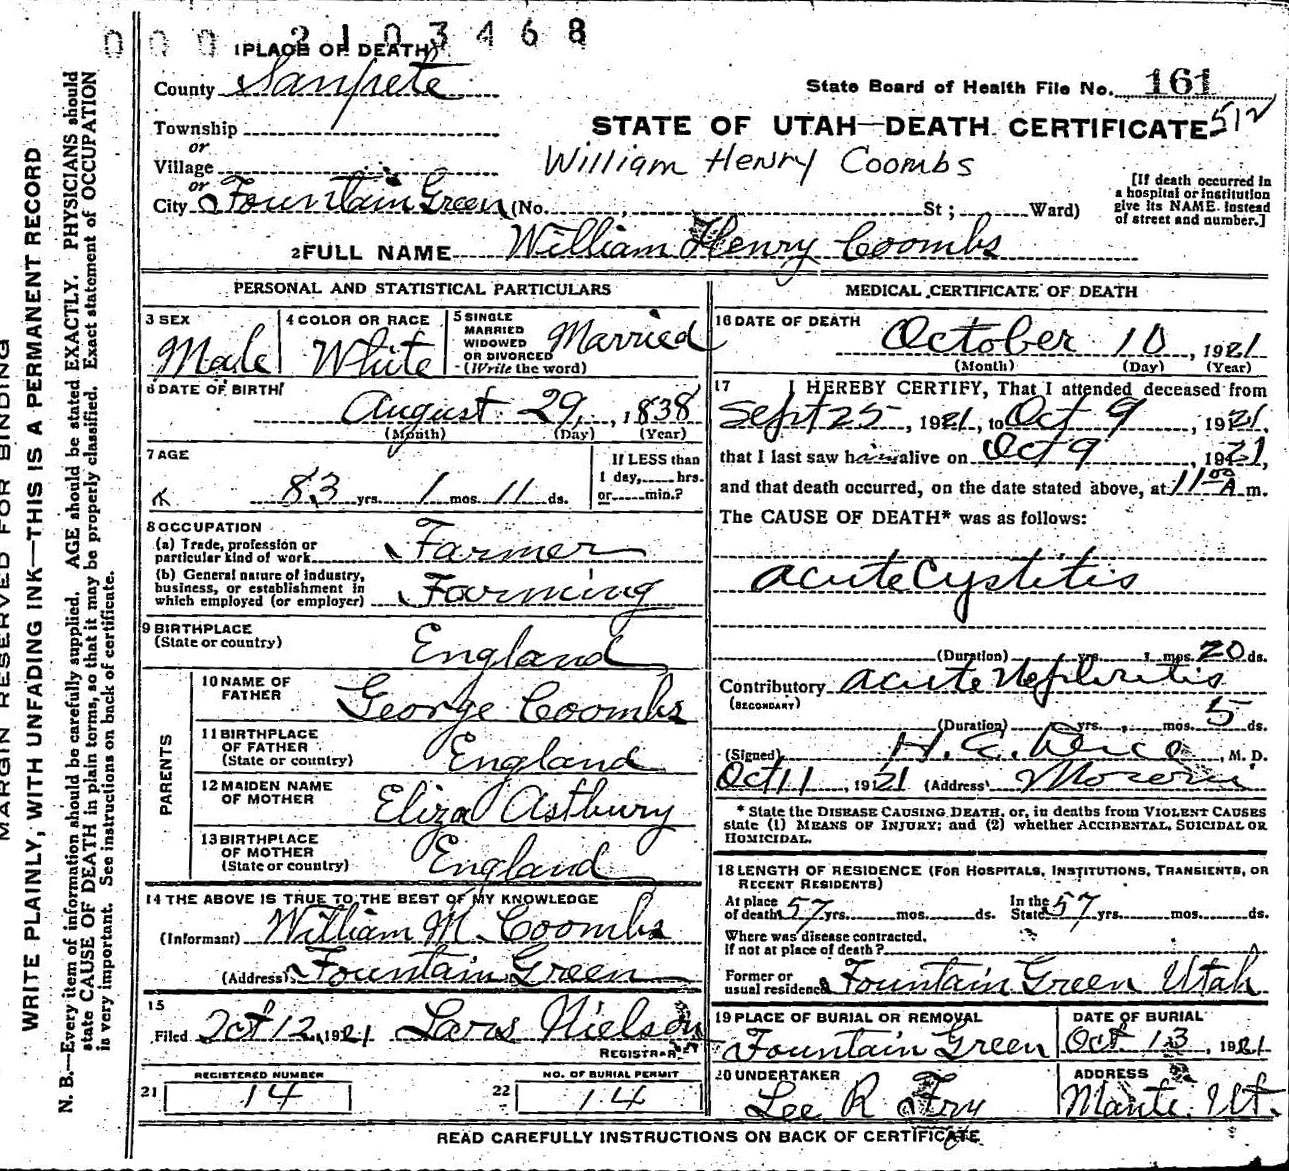 0 0 0 2 1 0 3 4 6 8
1 PLACE OF DEATH)
County Sanpete
State Board of Health File No. 161
512
Township
or
STATE OF UTAH—DEATH CERTIFICATE
William Henry Coombs
Village
or
City Fountain Green (No. , St ; Ward)
[If death occurred in
a hospital or institution
give its NAME. instead
of street and number.]
2 FULL NAME William Henry Coombs
PERSONAL AND STATISTICAL PARTICULARS
3 SEX
Male
4 COLOR OR RACE
White
5 SINGLE
MARRIED
WIDOWED
OR DIVORCED
(Write the word)
Married
6 DATE OF BIRTH
August 29, , 1838
(Month) (Day) (Year)
7 AGE
83 yrs. 1 mos. 11 ds.
If LESS than
1 day, hrs.
or min.?
8 OCCUPATION
(a) Trade, profession or
particular kind of work Farmer
(b) General nature of industry,
business, or establishment in
which employed (or employer) Farming
9 BIRTHPLACE
(State or country) England
PARENTS
10 NAME OF
FATHER George Coombs
11 BIRTHPLACE
OF FATHER
(State or country) England
12 MAIDEN NAME
OF MOTHER Eliza Astbury
13 BIRTHPLACE
OF MOTHER
(State or country) England
14 THE ABOVE IS TRUE TO THE BEST OF MY KNOWLEDGE
(Informant) William M. Coombs
(Address) Fountain Green
15
Filed Oct 12, 1921 Lars Nielson
REGISTRAR
REGISTERED NUMBER
21 14
NO. OF BURIAL PERMIT
22 14
MEDICAL CERTIFICATE OF DEATH
16 DATE OF DEATH
October 10 , 1921
(Month) (Day) (Year)
17 I HEREBY CERTIFY, That I attended deceased from
Sept 25 , 1921, to Oct 9 , 1921,
that I last saw him alive on Oct 9 , 1921,
and that death occurred, on the date stated above, at 11 00 A m.
The CAUSE OF DEATH* was as follows:
acute Cystitis
(Duration) yrs. mos. 20 ds.
Contributory acute Nephritis
(SECONDARY)
(Duration) yrs. , mos. 5 ds.
(Signed) H. , M. D.
Oct 11 , 1921 (Address) Moroni
* State the DISEASE CAUSING DEATH, or, in deaths from VIOLENT CAUSES
state (1) MEANS OF INJURY; and (2) whether ACCIDENTAL, SUICIDAL OR
HOMICIDAL.
18 LENGTH OF RESIDENCE (FOR HOSPITALS, INSTITUTIONS, TRANSIENTS, OR
RECENT RESIDENTS)
At place
of death 57 yrs. mos. ds.
In the
State 57 yrs. mos. ds.
Where was disease contracted.
If not at place of death ?
Former or
usual residence Fountain Green Utah
19 PLACE OF BURIAL OR REMOVAL
Fountain Green
DATE OF BURIAL
Oct. 13 , 1921
20 UNDERTAKER
Lee R Fry
ADDRESS
Manti Ut.
READ CAREFULLY INSTRUCTIONS ON BACK OF CERTIFICATE
MARGIN RESERVED FOR BINDING
WRITE PLAINLY, WITH UNFADING INK—THIS IS A PERMANENT RECORD
N. B.—Every item of information should be carefully supplied. AGE should be stated EXACTLY. PHYSICIANS should
state CAUSE OF DEATH in plain terms, so that it may be properly classified. Exact statement of OCCUPATION
is very important. See instructions on back of certificate.